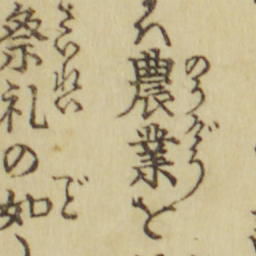 は農業を
のうげう
祭礼の如
さいれい